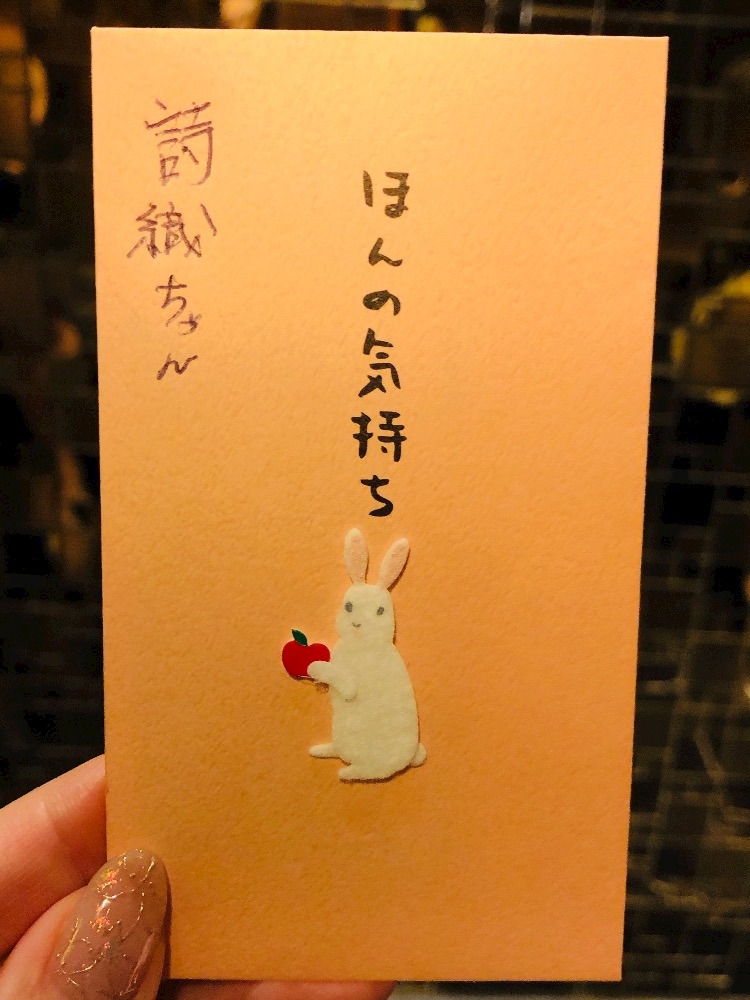 ほんの気持ち
詩織ちゃん